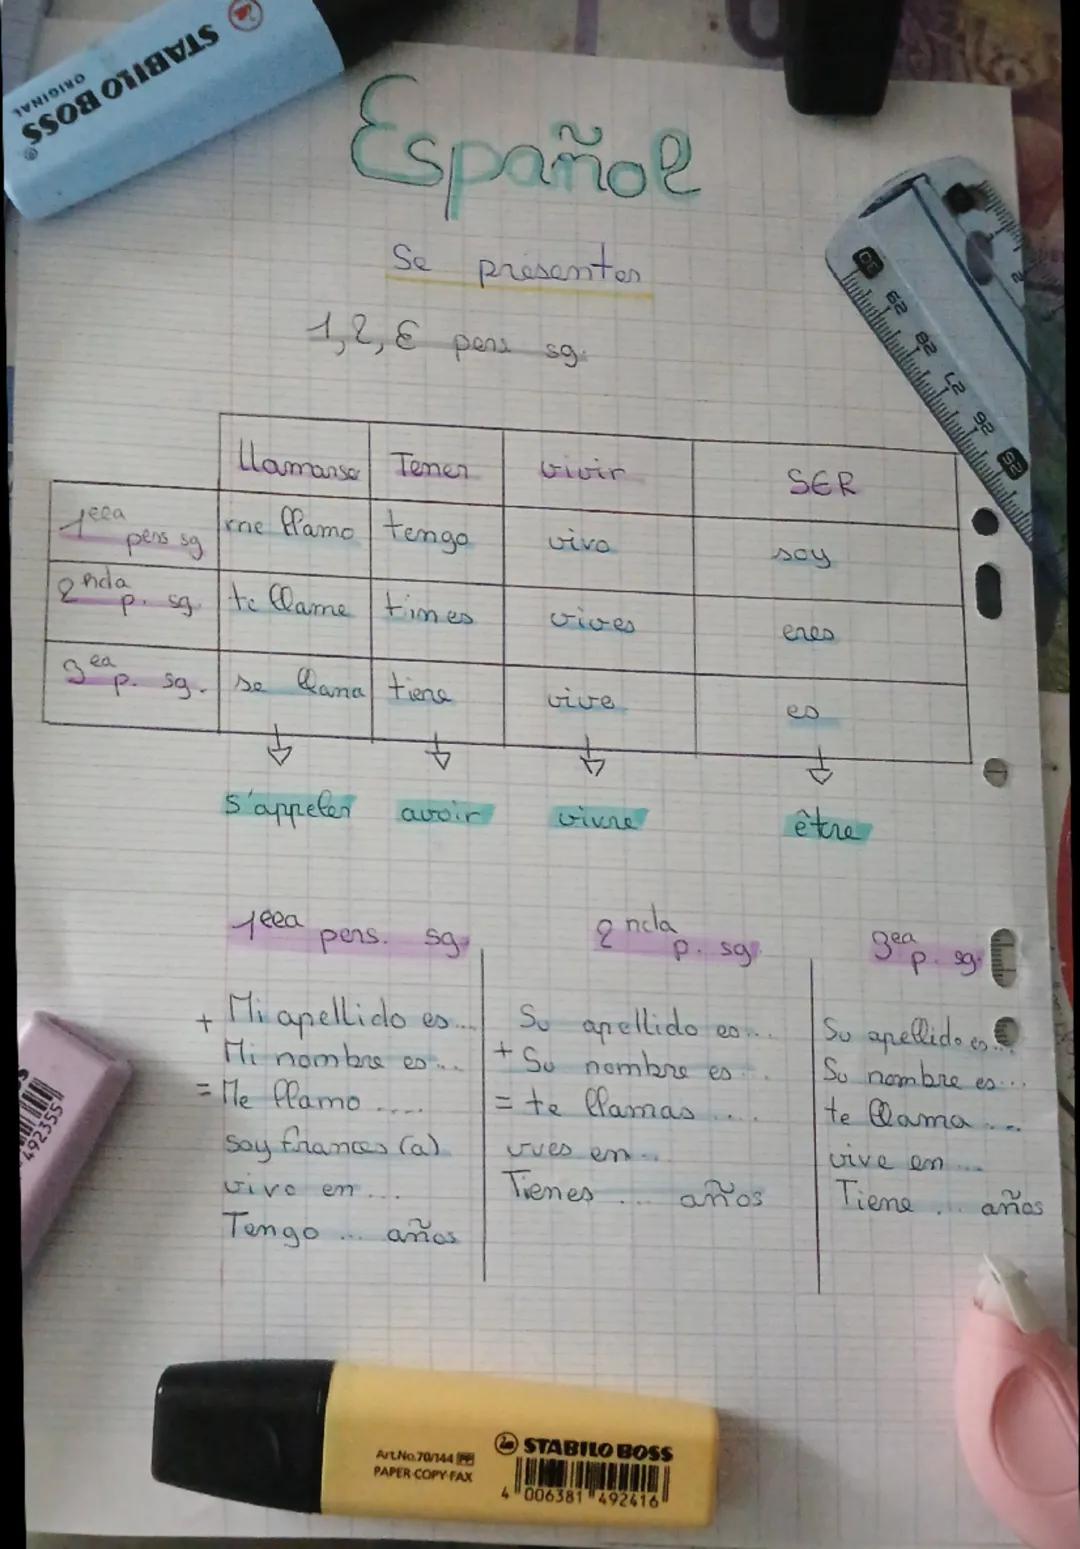 STABILO BOSS
ORIGINAL
Español
Se présenter
1, 2, 3 pers sg.
Llamarse Tener vivir SER
1era pers sg me llamo tengo vivo soy
2nda p. sg. te llame times vives eres
3ea p. sg. se llama tiene vive es
s'appeler avoir vivre être
1era pers. sg. 2nda p. sg. 3ea p. sg.
+ Mi apellido es... Su apellido es... Su apellido es...
Mi nombre es... + Su nombre es... Su nombre es...
= Me llamo .... = te llamas .... te llama ...
Soy frances (a) vives en... vive en ...
vivo en ... Tienes ... años Tiene ... años
Tengo ... años
30 29 28 27 26 25
492355
Art.No.70/144
PAPER·COPY·FAX
STABILO BOSS
4 006381 492416